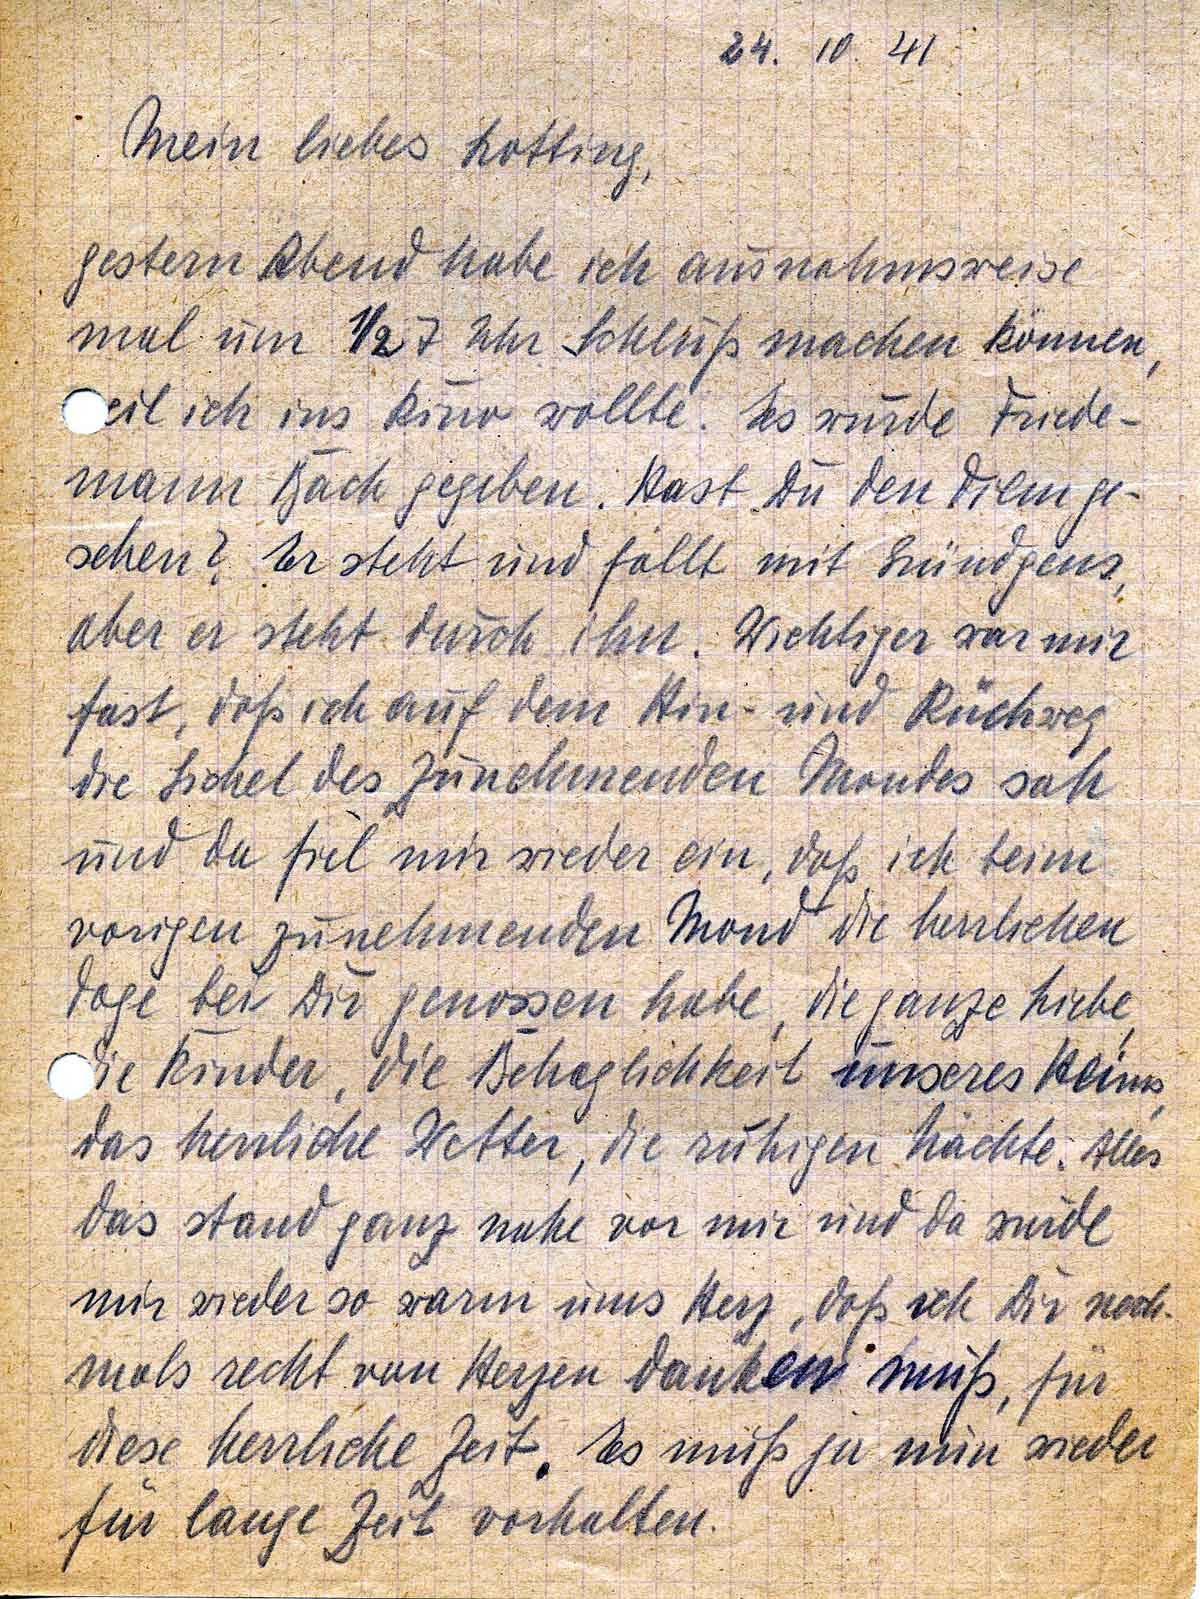 24. 10. 41
Mein liebes Lotting,
gestern Abend habe ich ausnahmsweise
mal um 1/2 7 Uhr Schluß machen können,
eil ich ins Kino wollte. Es wurde Friede-
mann Bach gegeben. Hast Du den Film ge-
sehen? Er steht und fällt mit Gründgens,
aber er steht durch ihn. Wichtiger war mir
fast, daß ich auf dem Hin- und Rückweg
die Sichel des zunehmenden Mondes sah
und da fiel mir wieder ein, daß ich beim
vorigen zunehmenden Mond die herrlichen
Tage bei Dir genossen habe, die ganze Liebe,
die Kinder, die Behaglichkeit unseres Heims,
das herrliche Wetter, die ruhigen Nächte. Alles
das stand ganz nahe vor mir und da wurde
mir wieder so warm ums Herz, daß ich Dir noch-
mals recht von Herzen danken muß, für
diese herrliche Zeit. Es muß ja nun wieder
für lange Zeit vorhalten.